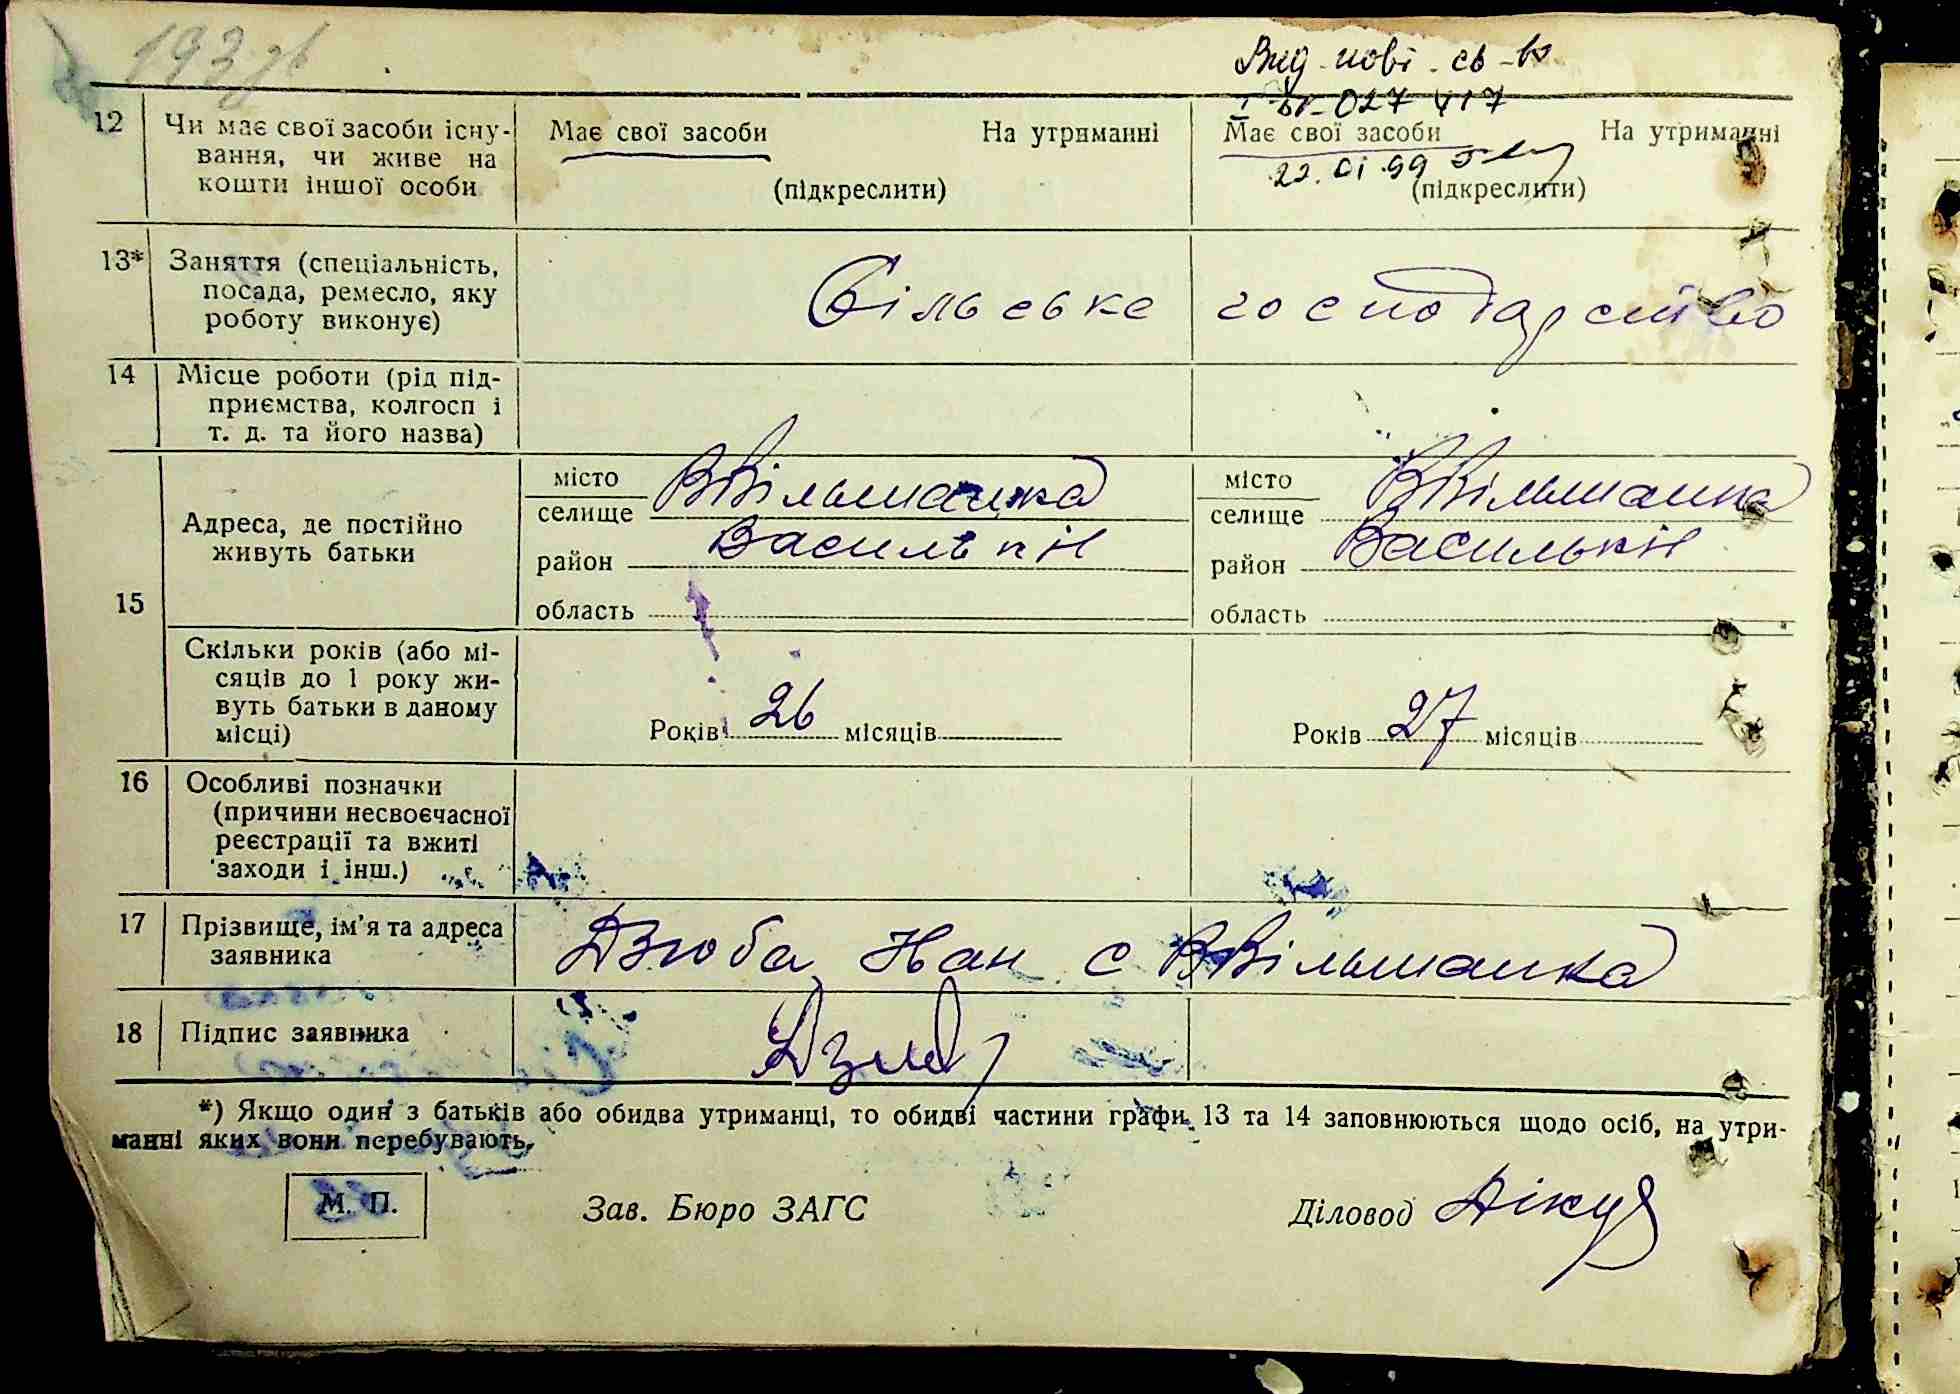 193
Вид. нові. св-во
027 417
12 Чи має свої засоби існу- Має свої засоби На утриманні Має свої засоби На утриманні
вання, чи живе на
кошти іншої особи (підкреслити) (підкреслити)
13* Заняття (спеціальність,
посада, ремесло, яку Сільське господарство
роботу виконує)
14 Місце роботи (рід під-
приємства, колгосп і
т. д. та його назва)
15 Адреса, де постійно
живуть батьки
місто
селище ВВільшанка
район Васильків
область
місто
селище ВВільшанка
район Васильків
область
15
Скільки років (або мі-
сяців до 1 року жи-
вуть батьки в даному
місці)
Років 26 місяців
Років 27 місяців
16 Особливі позначки
(причини несвоєчасної
реєстрації та вжиті
заходи і інш.)
17 Прізвище, ім'я та адреса
заявника
Дзюба Іван с ВВільшанка
18 Підпис заявника
*) Якщо один з батьків або обидва утриманці, то обидві частини графи 13 та 14 заповнюються щодо осіб, на утри-
манні яких вони перебувають.
М. П. Зав. Бюро ЗАГС Діловод